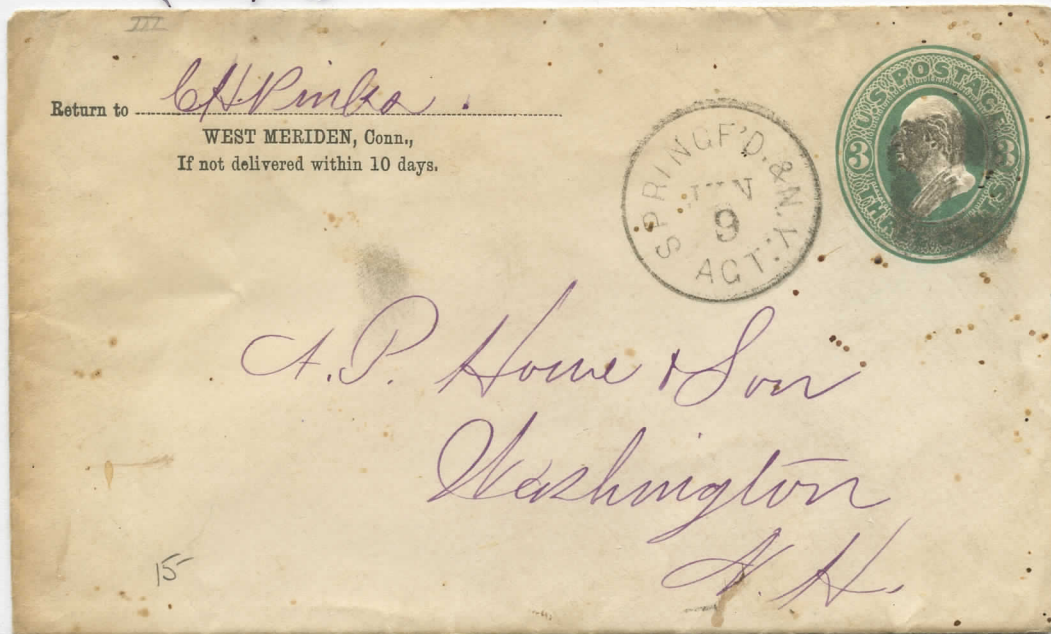 III
Return to C H Pinks.
WEST MERIDEN, Conn.,
If not delivered within 10 days.
SPRINGF'D. & N.Y. AGT.
9
U.S. POSTAGE
3 3
A. P. Howe & Son
Washington
N. H.
15-